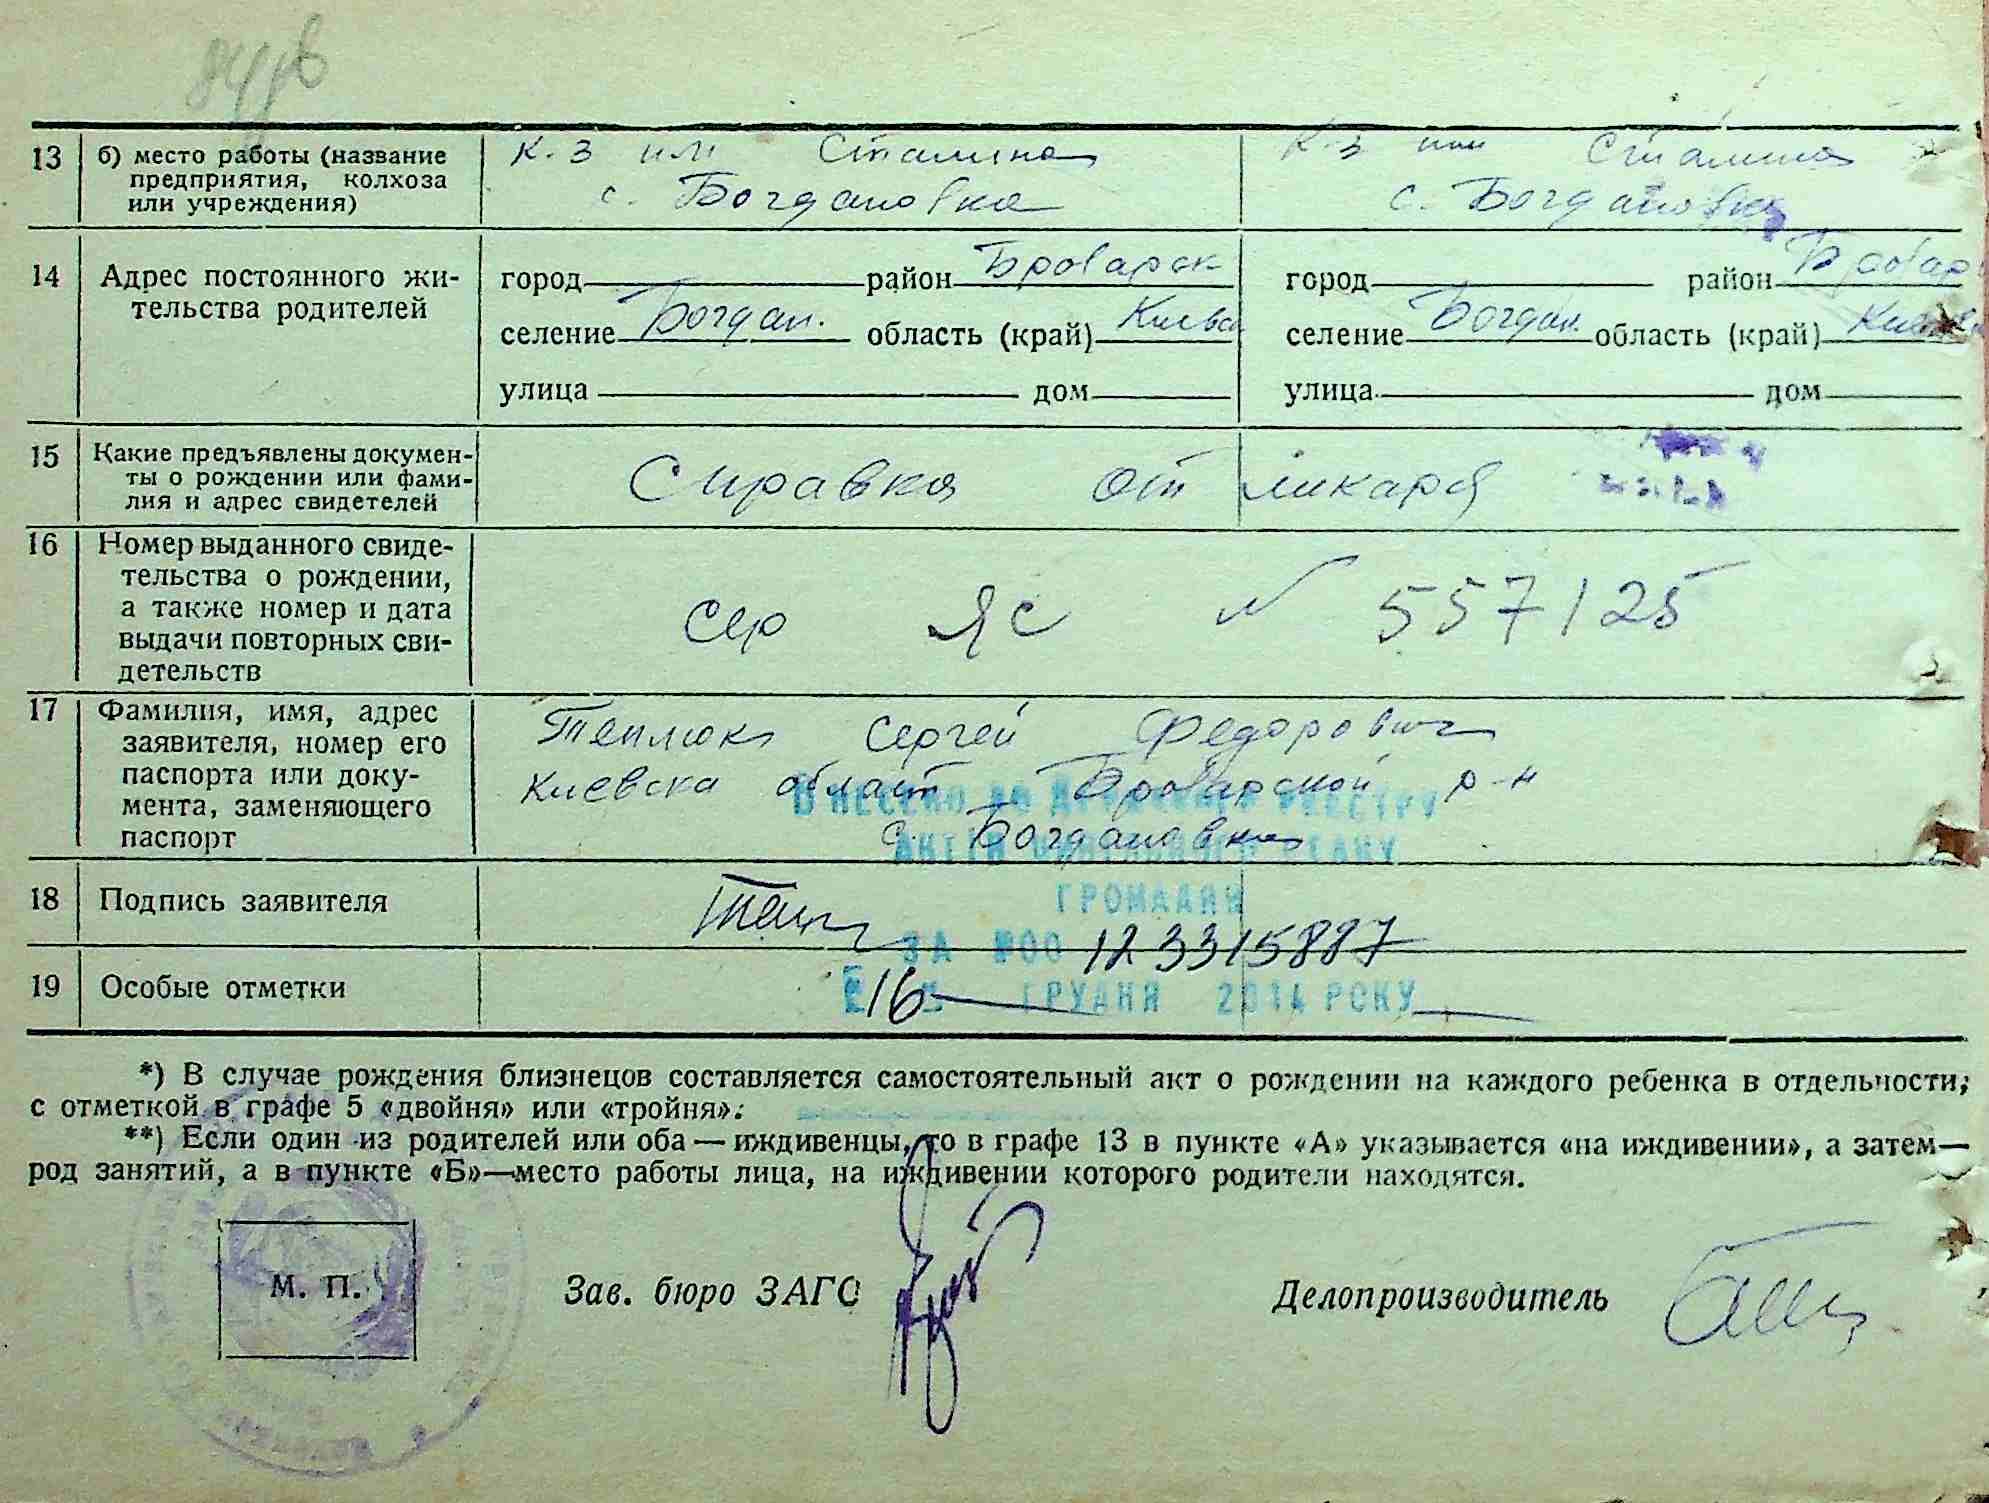 13 б) место работы (название предприятия, колхоза или учреждения)
к-з им Сталина
с. Богдановка
к-з им Сталина
с. Богдановка
14 Адрес постоянного жи-
тельства родителей
город район Броварск
селение Богдан. область (край) Киевск
улица дом
город район Бровар
селение Богдан. область (край) Киевск
улица дом
15 Какие предъявлены докумен-
ты о рождении или фами-
лия и адрес свидетелей
Справка от ликаря
16 Номер выданного свиде-
тельства о рождении,
а также номер и дата
выдачи повторных сви-
детельств
сер ЯС N 557125
17 Фамилия, имя, адрес
заявителя, номер его
паспорта или доку-
мента, заменяющего
паспорт
Теплюк Сергей Федорович
Киевска област Броварской р-н
с. Богдановка
ВНЕСЕНО ДО ДЕРЖАВНОГО РЕЄСТРУ
АКТІВ ЦИВІЛЬНОГО СТАНУ
ГРОМАДЯН
ЗА №00 123315887
16 ГРУДНЯ 2014 РОКУ
18 Подпись заявителя
19 Особые отметки
*) В случае рождения близнецов составляется самостоятельный акт о рождении на каждого ребенка в отдельности,
с отметкой в графе 5 «двойня» или «тройня».
**) Если один из родителей или оба — иждивенцы, то в графе 13 в пункте «А» указывается «на иждивении», а затем—
род занятий, а в пункте «Б»—место работы лица, на иждивении которого родители находятся.
М. П. Зав. бюро ЗАГС Делопроизводитель